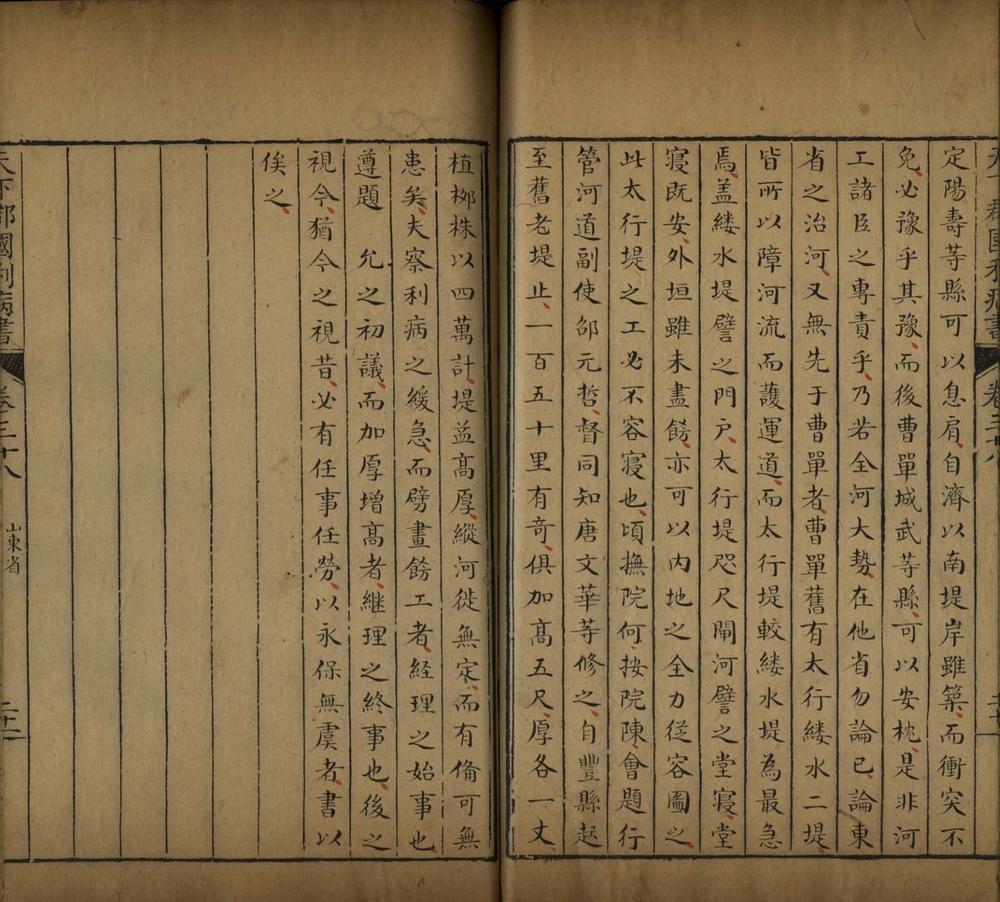 定陽壽等縣可以息肩自濟以南堤岸雖築而衝突不
免必豫乎其豫而後曹單城武等縣可以安枕是非河
工諸臣之專責乎乃若全河大勢在他省勿論已論東
省之治河又無先于曹單者曹單舊有太行縷水二堤
皆所以障河流而護運道而太行堤較縷水堤為最急
焉蓋縷水堤譬之門戶太行堤咫尺閘河譬之堂寢堂
寢既安外垣雖未盡餝亦可以內地之全力從容圖之
此太行堤之工必不容寢也頃撫院何按院陳會題行
管河道副使邰元哲督同知唐文華等修之自豐縣起
至舊老堤止一百五十里有奇俱加高五尺厚各一丈
植栁株以四萬計堤益高厚縱河徙無定而有俻可無
患矣夫察利病之緩急而劈畫餝工者經理之始事也
遵題　允之初議而加厚增高者継理之終事也後之
視今猶今之視昔必有任事任勞以永保無虞者書以
俟之
天下郡國利病書
卷三十八
山東省